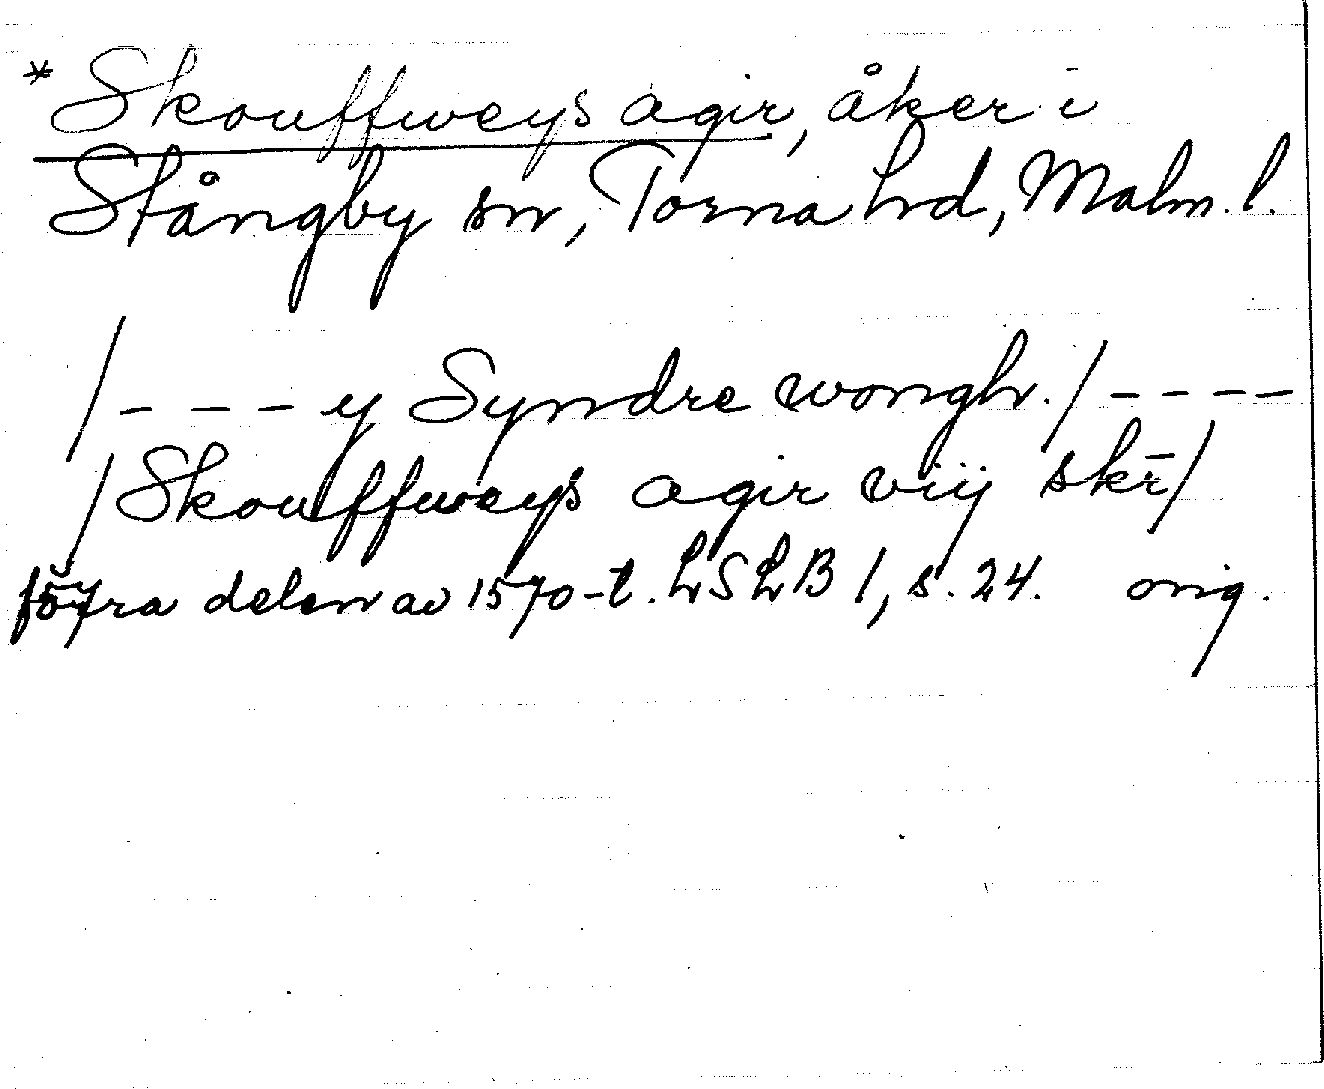 *Skouffweys agir, åker i
Stångby sn, Torna hd, Malm. l.
/ - - - y Syndre wongh. / - - - -
/ Skouffweys agir viij skr̄ /
förra delen av 1570-t. LSLB 1, s. 24. orig.